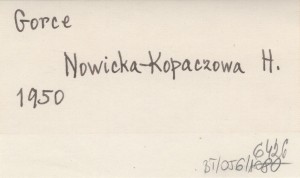 Gorce
Nowicka-Kopaczowa H.
1950
6426
BT/056/1080